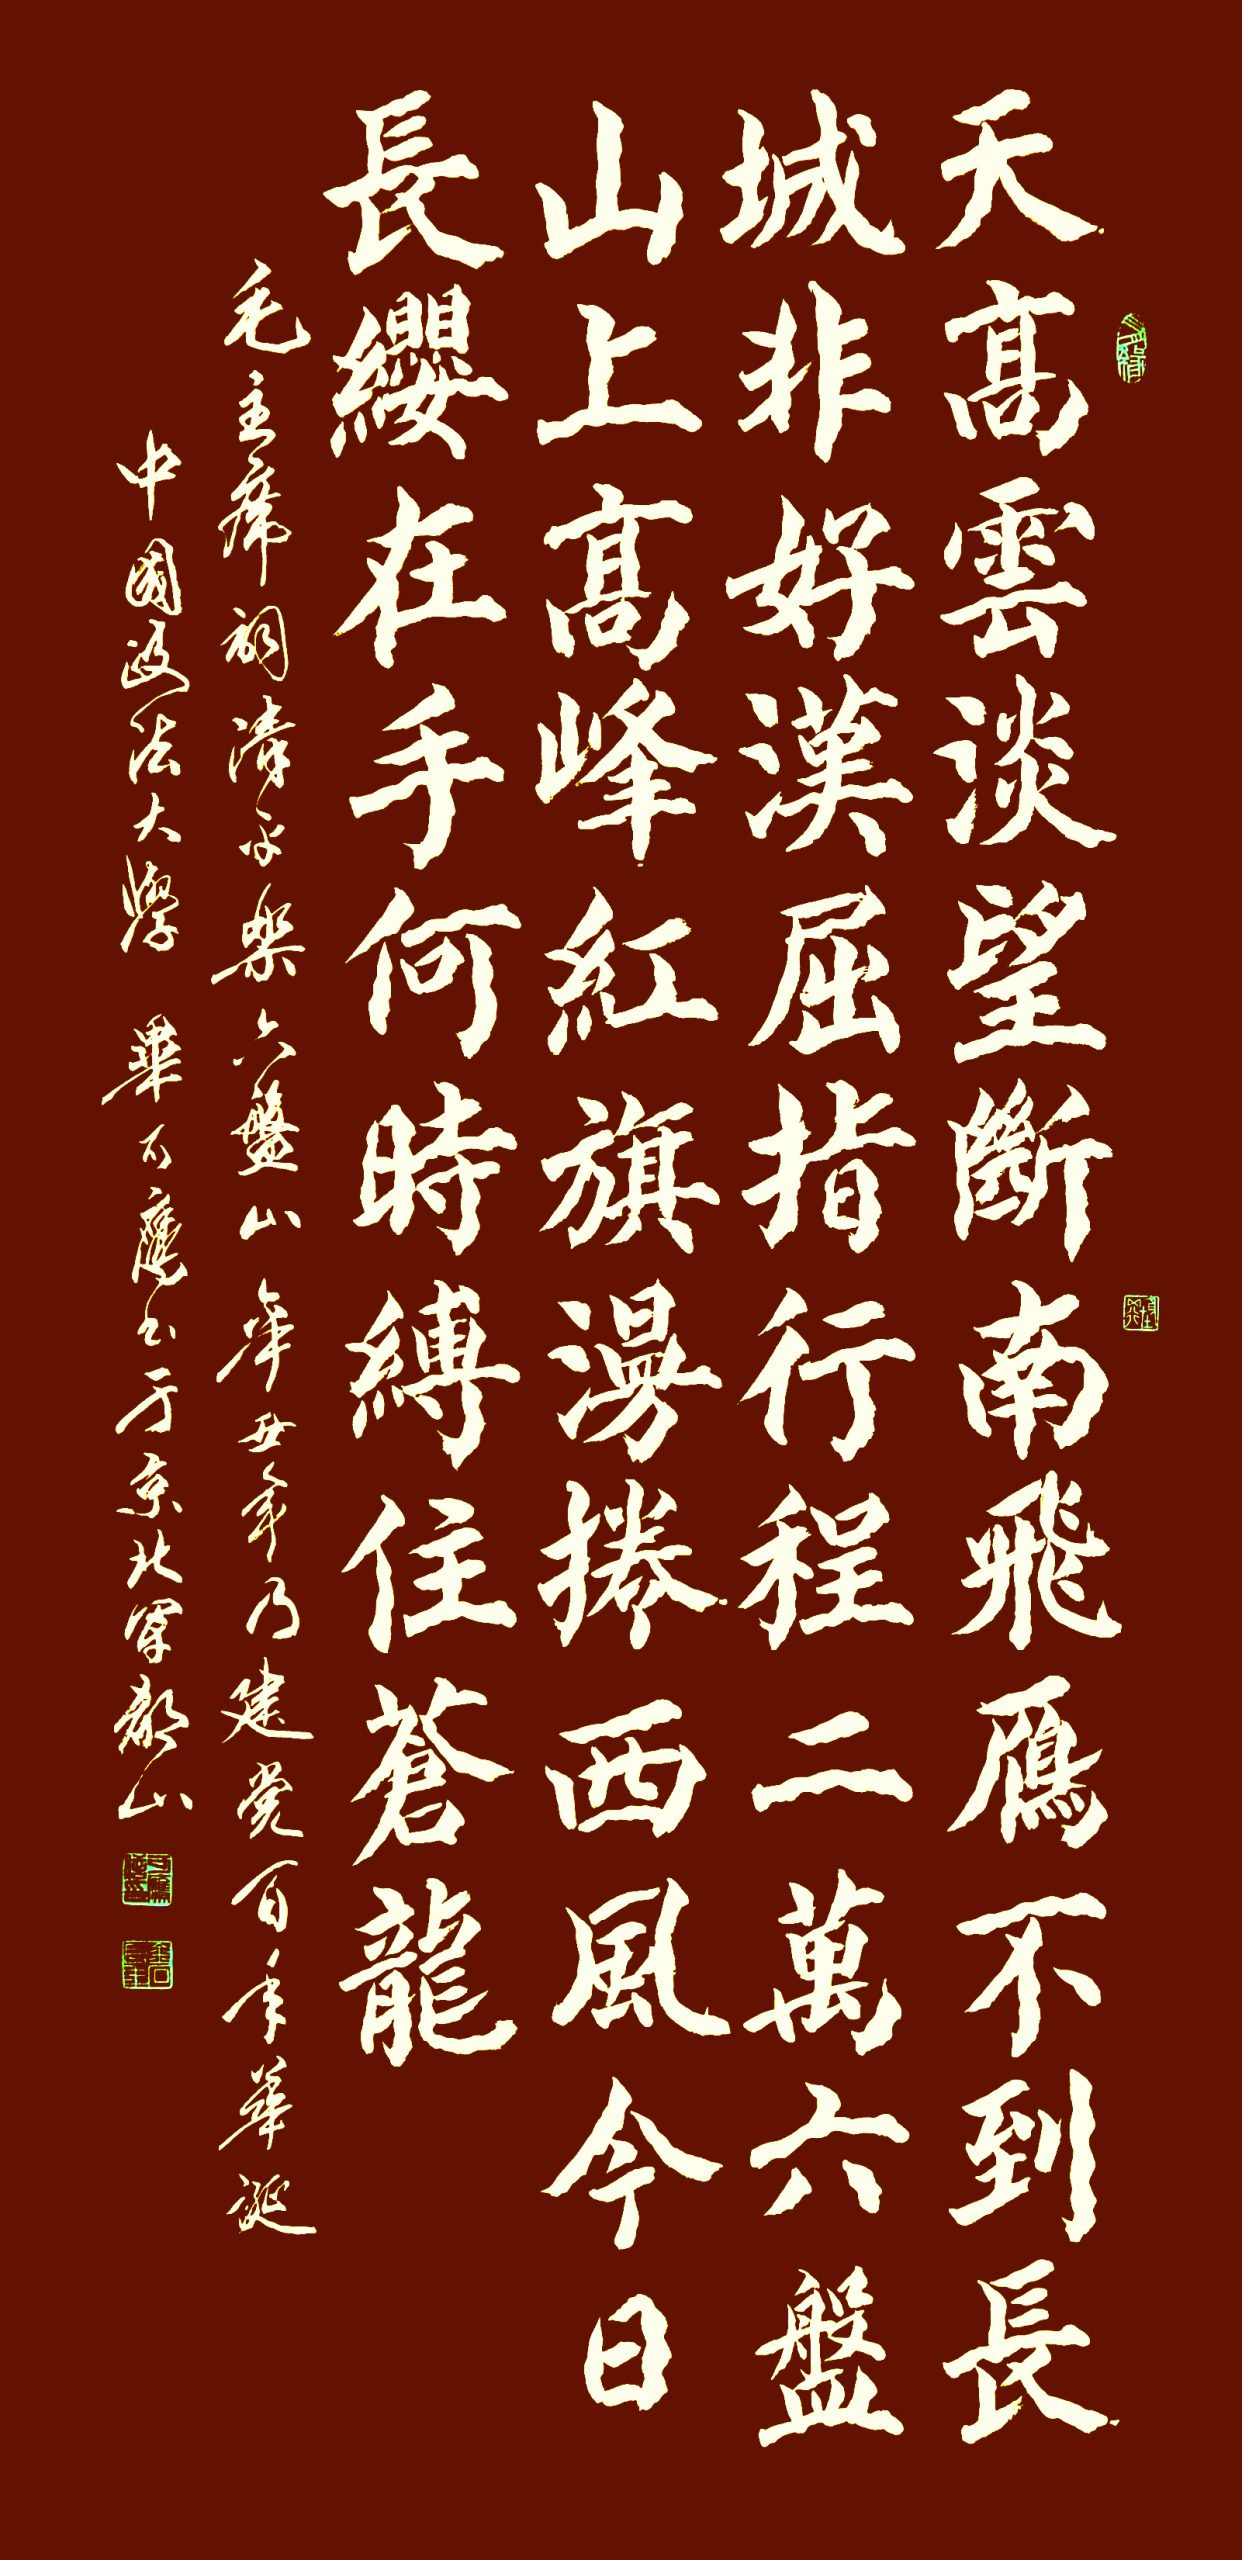 天髙雲淡望斷南飛鴈不到長
城非好漢屈指行程二萬六盤
山上髙峰紅旗漫捲西風今日
長纓在手何時縛住蒼龍
毛主席詞清平樂六盤山 辛丑年乃建党百年華誕
中國政法大學 畢可鷹书于京北軍都山